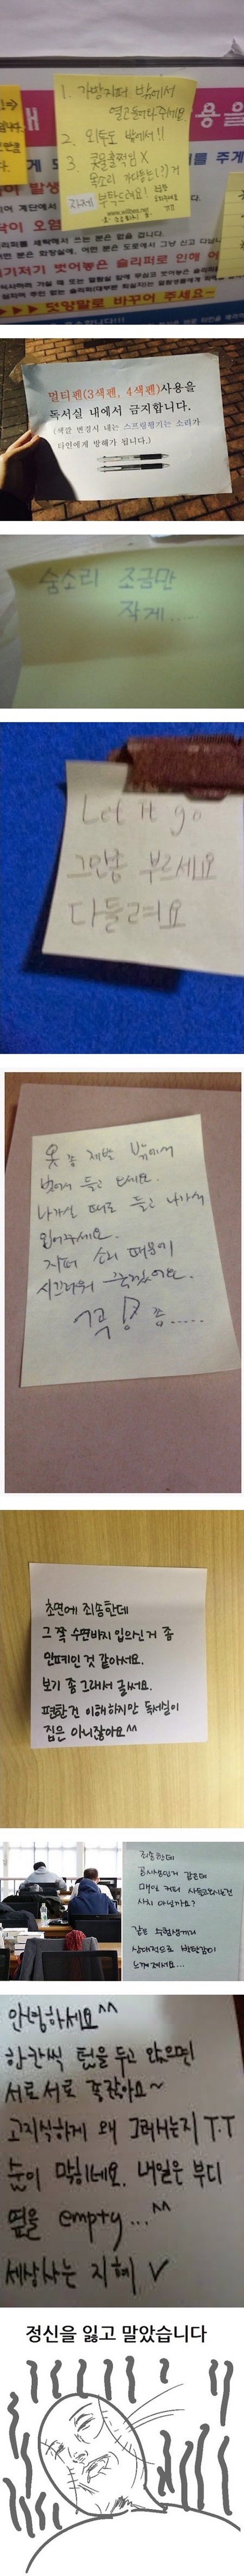 1. 가방지퍼 밖에서
열고들어와주세요.
2. 외투도 밖에서!!
3. 콧물훌쩍임 X
목소리 가다듬는(?) 거
자제 부탁드려요!
멀티펜(3색펜, 4색펜)사용을
독서실 내에서 금지합니다.
(색깔 변경시 내는 스프링튕기는 소리가
타인에게 방해가 됩니다.)
숨소리 조금만
작게.....
Let it go
그만좀 부르세요
다들려요
옷 좀 제발 밖에서
벗어서 들고 오세요.
나가실 때도 들고 나가서
입어주세요.
지퍼 소리 때문에
시끄러워 죽겠어요.
꼭 좀.....
초면에 죄송한데
그 쪽 수면바지 입으신거 좀
민폐인 것 같아서요.
보기 좀 그래서 글써요.
편한건 이해하지만 독서실이
집은 아니잖아요^^
죄송한데
공시생인거 같은데
매일 커피 사들고오시는건
사치 아닐까요?
같은 수험생끼리
상대적으로 박탈감이
느껴져서요...
안녕하세요^^
한칸씩 텀을 두고 앉으면
서로서로 좋잖아요~
고지식하게 왜 그러시는지 T.T
숨이 막히네요. 내일은 부디
옆을 empty...^^
세상사는 지혜 ✓
정신을 잃고 말았습니다